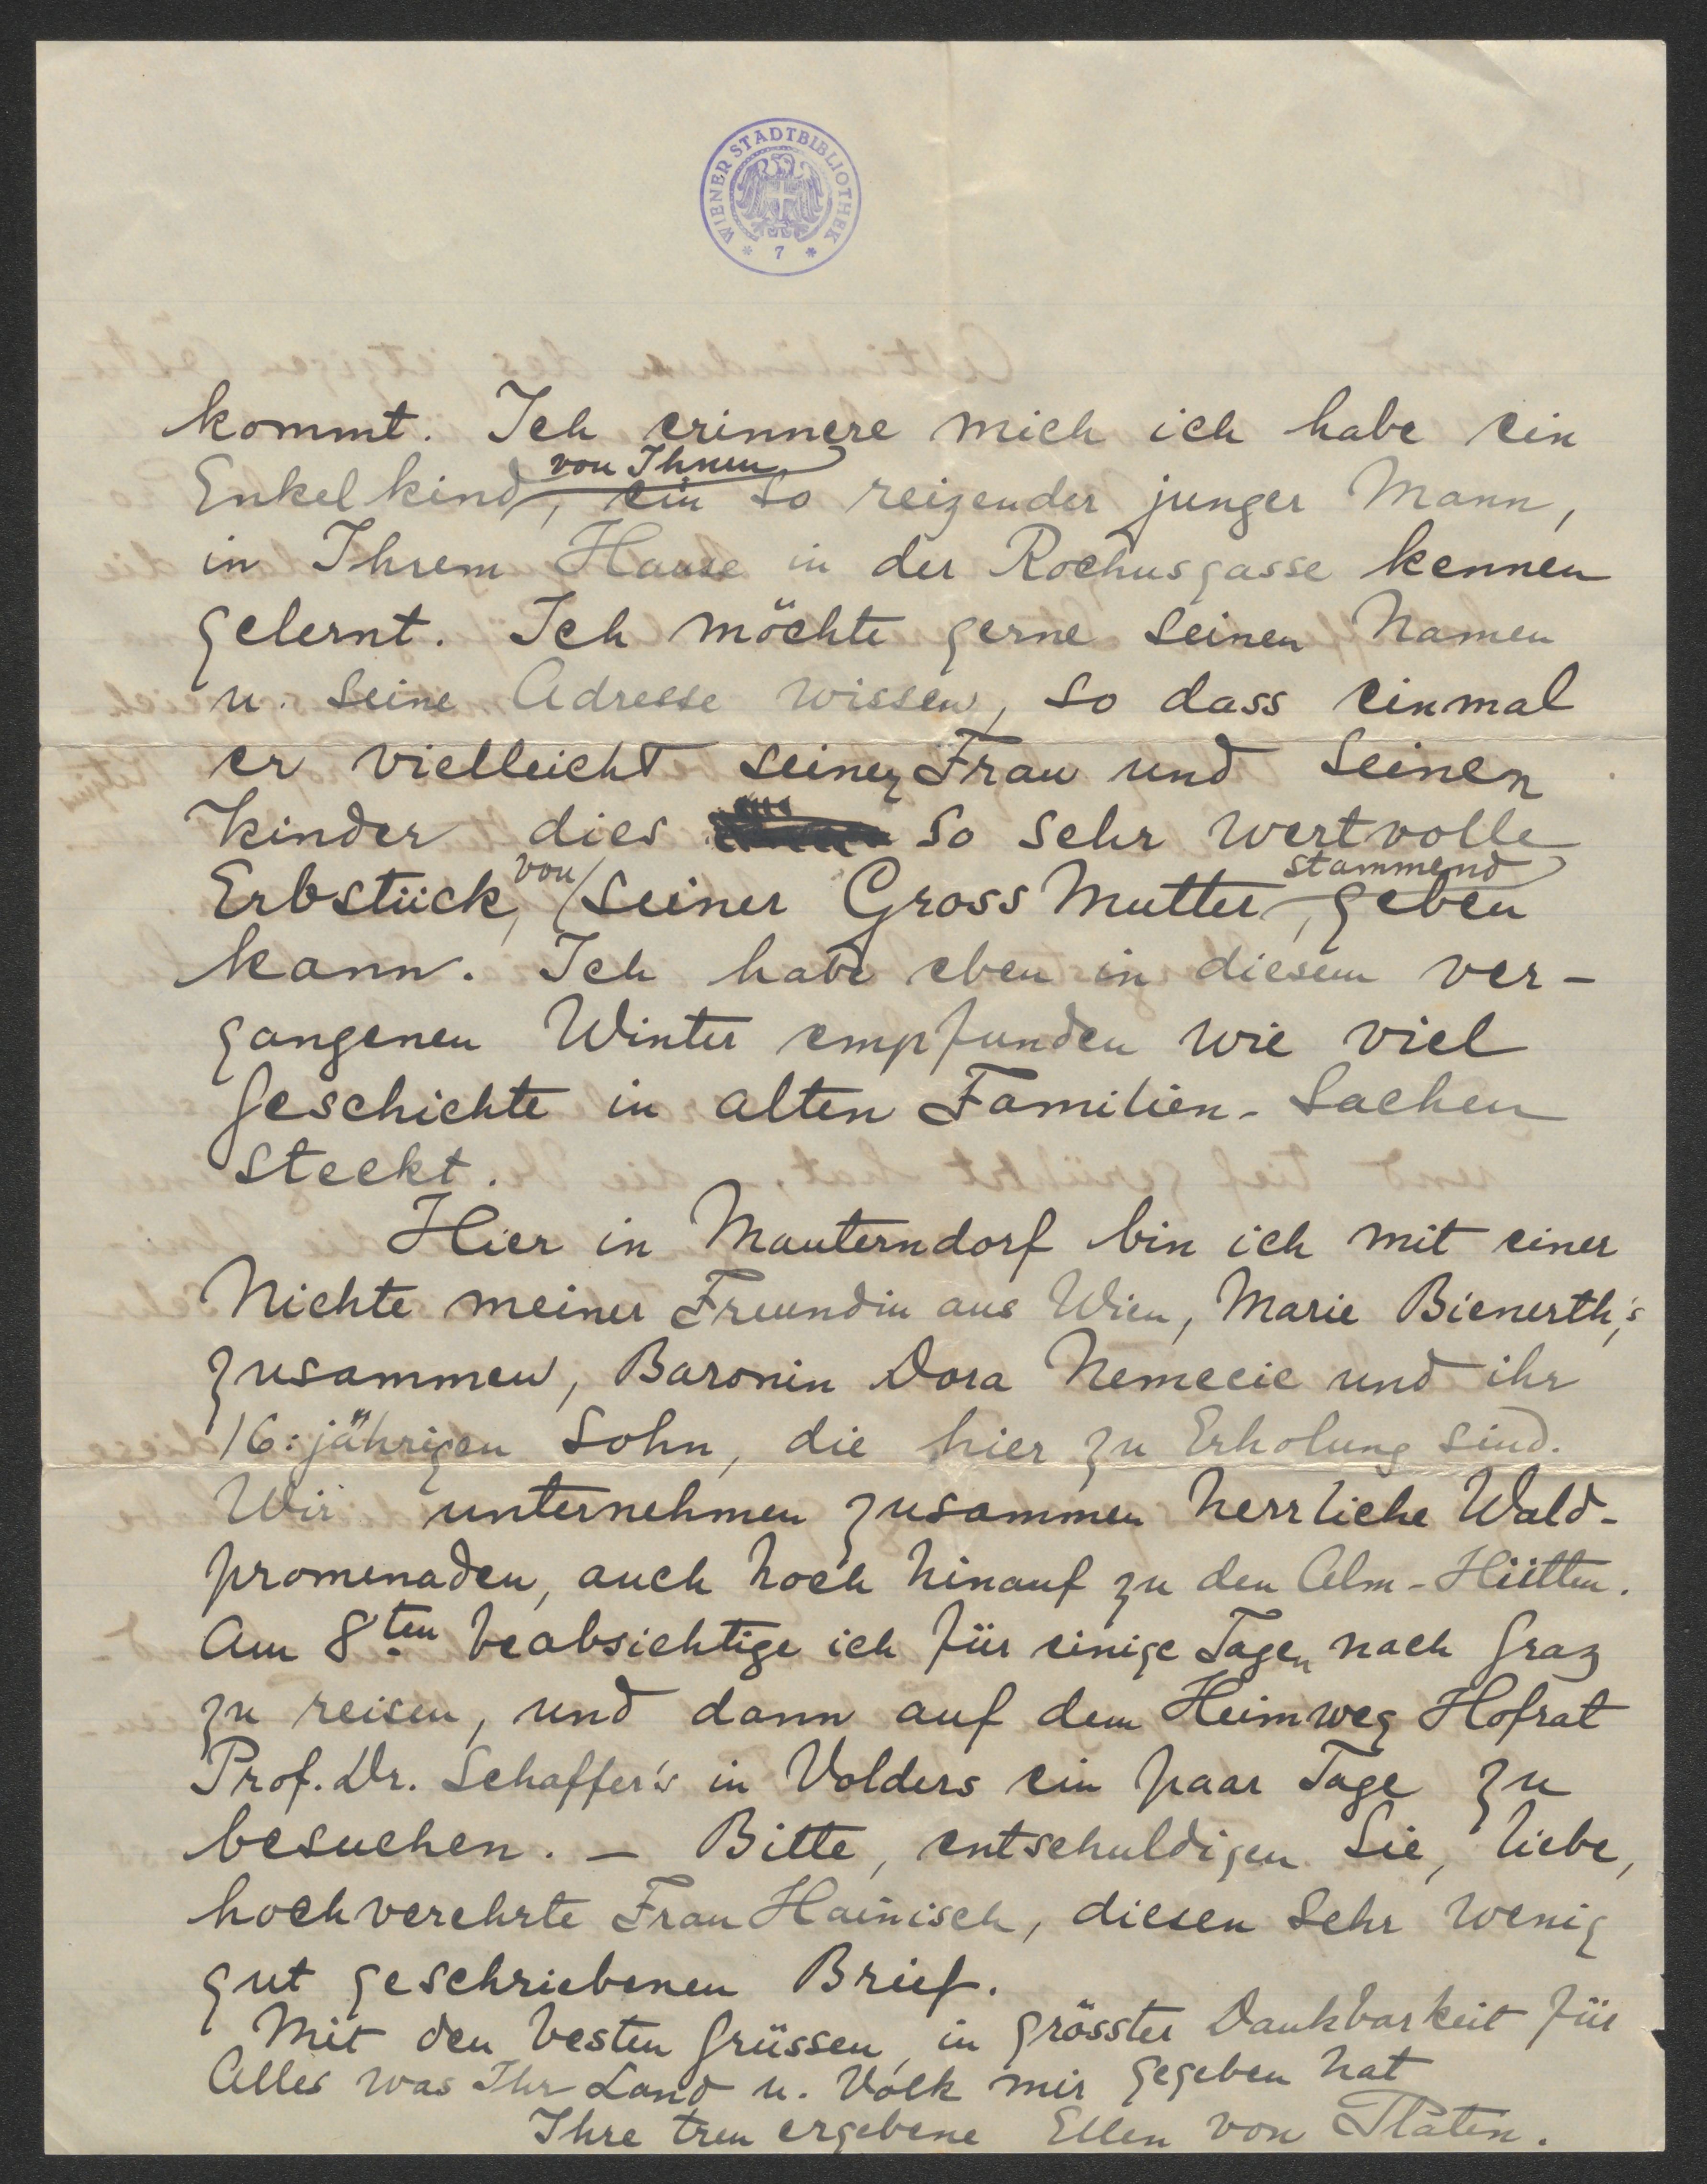 WIENER STADTBIBLIOTHEK
* 7 *
kommt. Ich erinnere mich ich habe ein
Enkelkind von Ihnen, ein so reizender junger Mann,
in Ihrem Hause in der Rochusgasse kennen
gelernt. Ich möchte gerne seinen Namen
u. seine Adresse wissen, so dass einmal
er vielleicht seiner Frau und seinen
Kinder dies so sehr wertvolle
Erbstück, von seiner Gross Mutter stammend, geben
kann. Ich habe eben in diesem ver-
gangenen Winter empfunden wie viel
Geschichte in alten Familien-Sachen
steckt.
Hier in Mauterndorf bin ich mit einer
Nichte meiner Freundin aus Wien, Marie Bienerth's,
zusammen, Baronin Dora Nemecic und ihr
16:jährigen Sohn, die hier zu Erholung sind.
Wir unternehmen zusammen herrliche Wald-
promenaden, auch hoch hinauf zu den Alm-Hütten.
Am 8ten beabsichtige ich für einige Tagen nach Graz
zu reisen, und dann auf dem Heimweg Hofrat
Prof. Dr. Schaffer's in Volders ein paar Tage zu
besuchen. – Bitte, entschuldigen Sie, liebe,
hochverehrte Frau Hainisch, diesen sehr wenig
gut geschriebenen Brief.
Mit den besten Grüssen, in grösster Dankbarkeit für
Alles was Ihr Land u. Volk mir gegeben hat
Ihre treu ergebene Ellen von Platen.